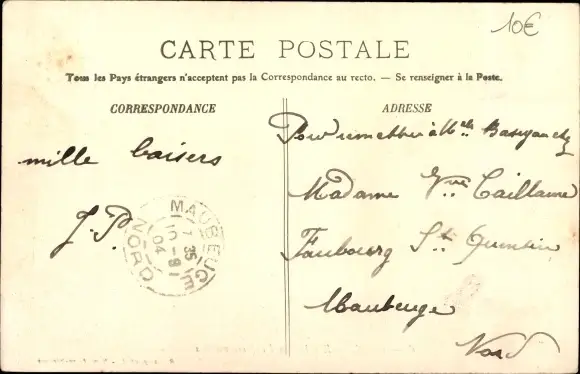 10€
CARTE POSTALE
Tous les Pays étrangers n'acceptent pas la Correspondance au recto. — Se renseigner à la Poste.
CORRESPONDANCE
ADRESSE
mille baisers
J. P.
Pour remettre à Mlle
Madame Vve Caillaume
Faubourg St Quentin
Maubeuge
Nord
MAUBEUGE
7 35
04
NORD